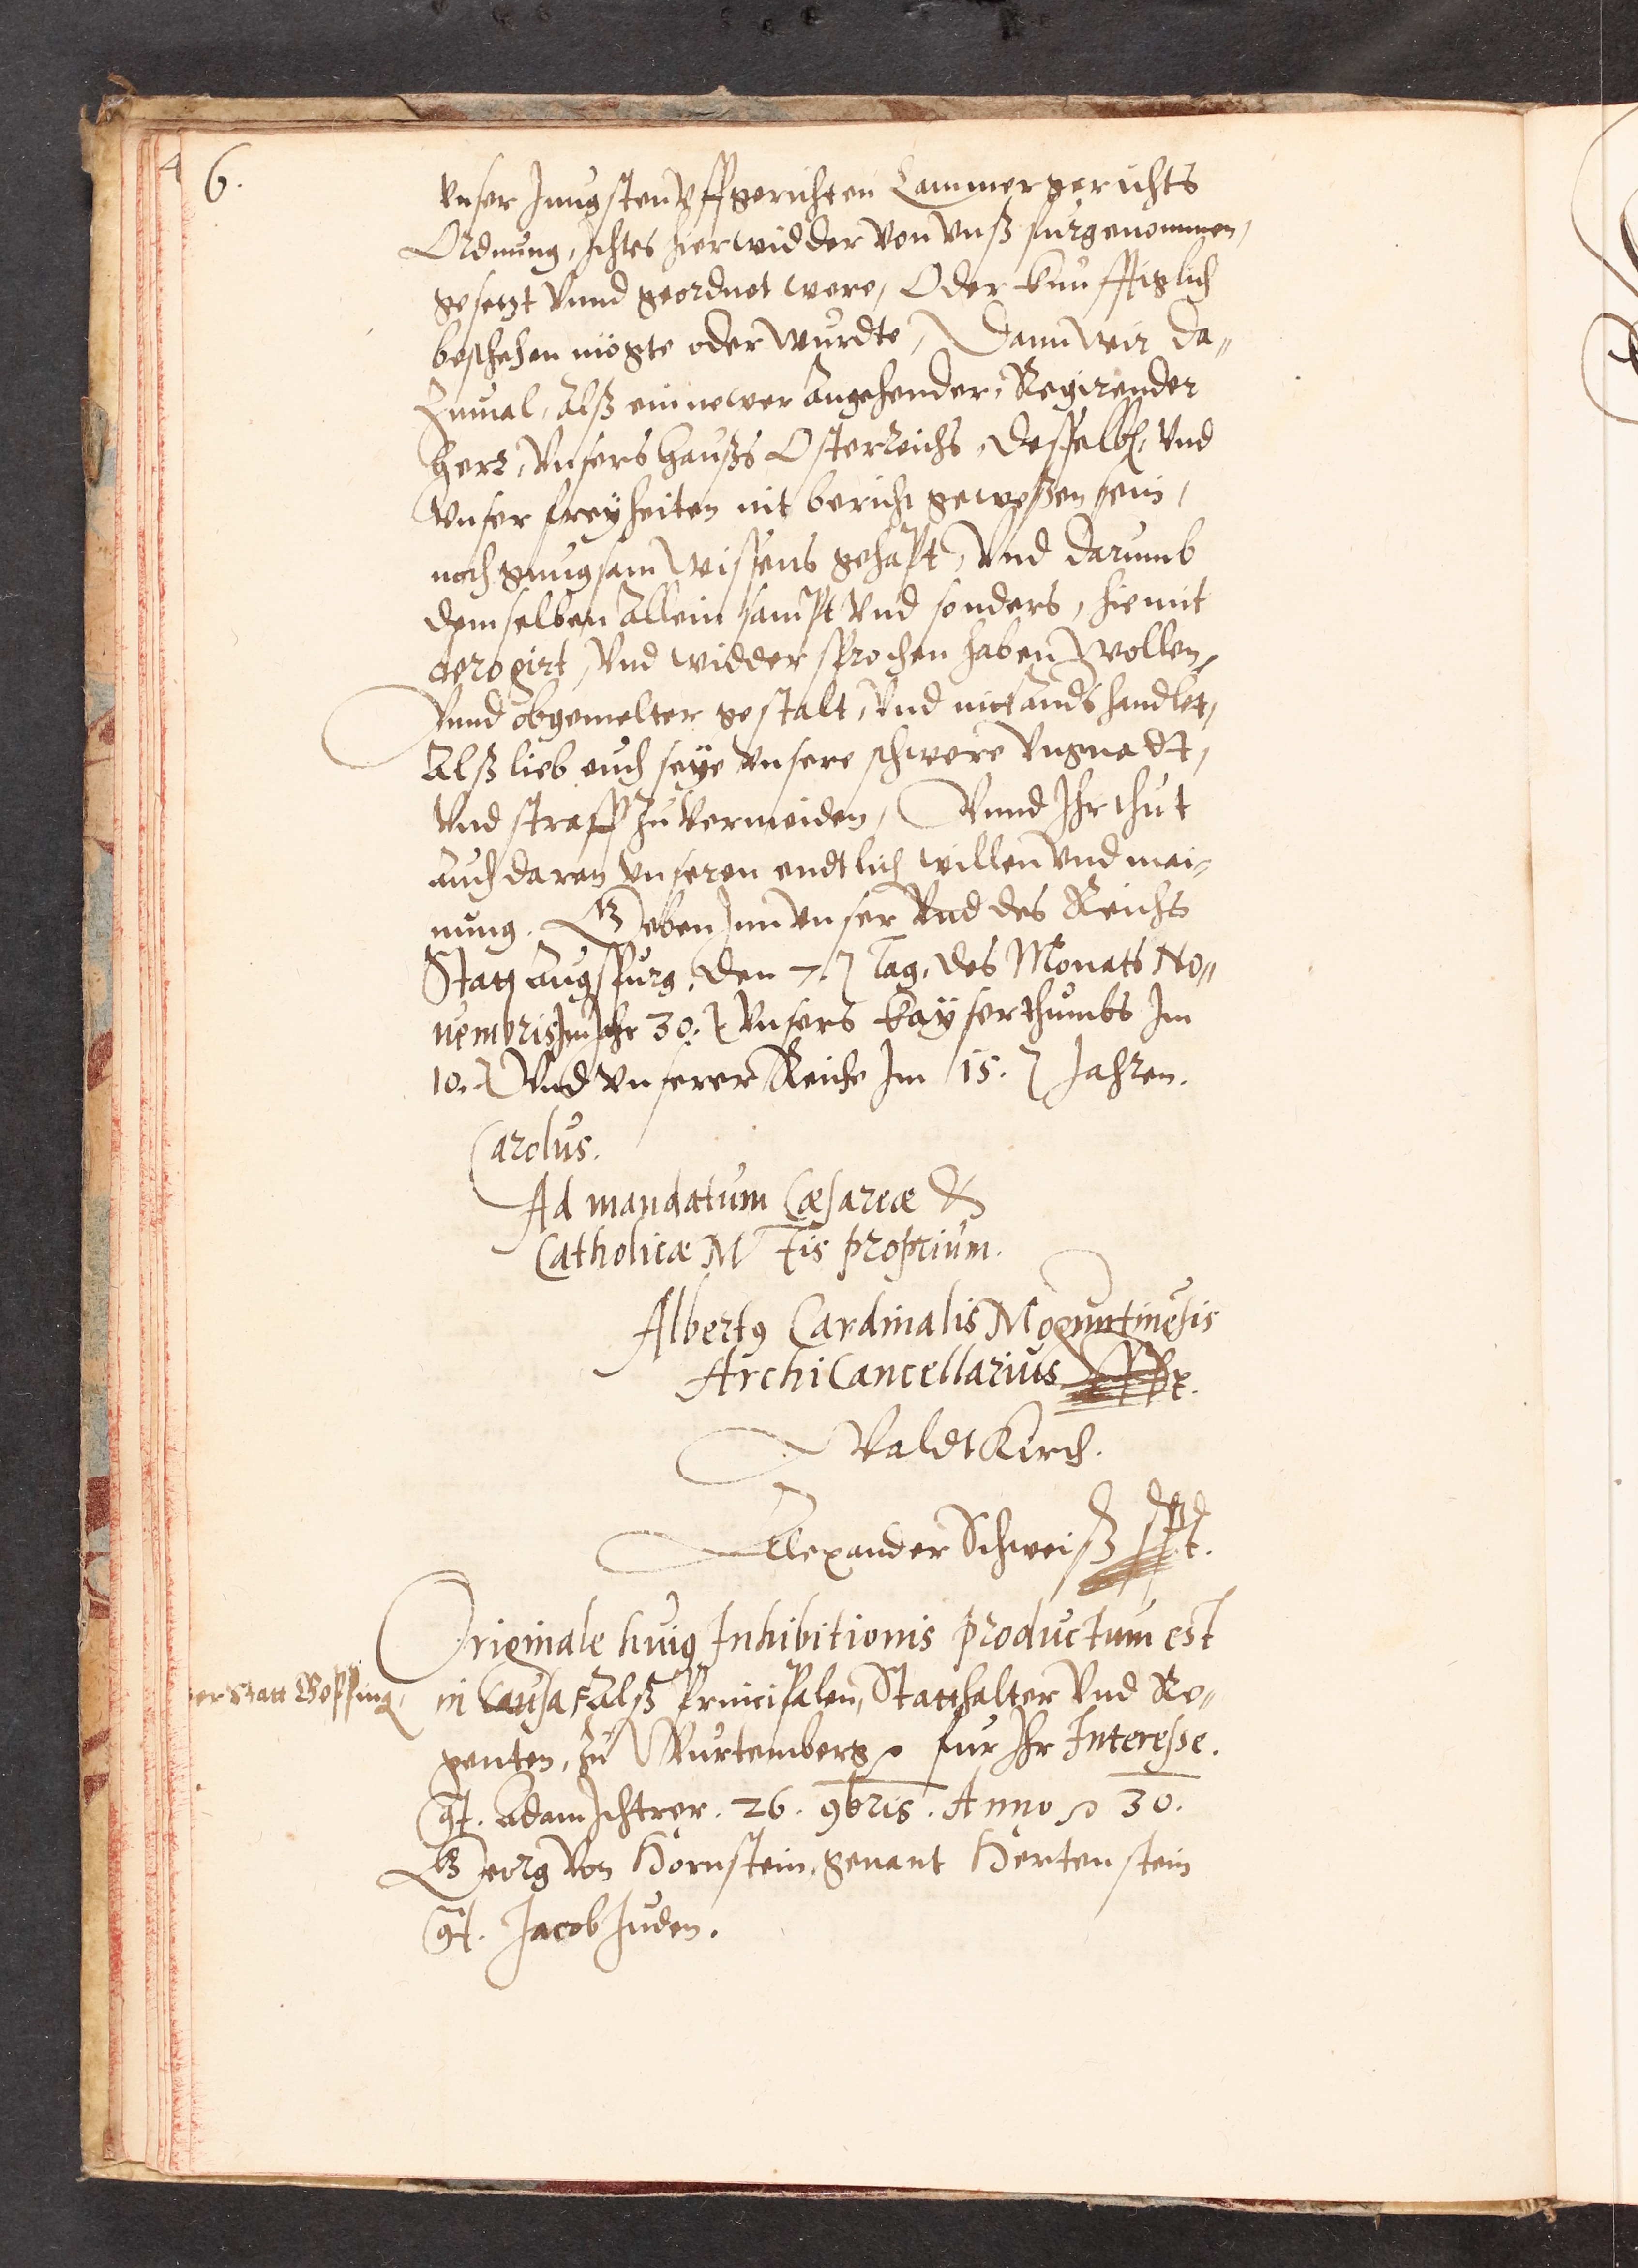 6.
vnser Jungsten vffgerichten Cammergerichts
Ordnung, Ichtes hierwidder von vnß furgenommen,
gesetzt vnnd geordnet were, Oder kunfftiglich
beschehen mögte oder wurdte, Dann wir da„
Zumal, Alß ein newer angehender, Regirender
Herr, vnsers Haußs Osterreichs, desselb, vnd
vnser freyheiten nit bericht geweßen sein,
noch gnugsam wissens gehapt, vnd darumb
demselben allein sampt vnd sonders, hiemit
derogirt, vnd widdersprochen haben wollen,
Vnnd obgemelter gestalt, vnd nit anders handlet,
Alß lieb euch seye vnsere schwere vngnadt,
vnd straff zuvermeiden, Vnnd Ihr thut
auch daran vnseren endtlich willen vnd mai„
nung. Geben Inn vnser vnd des Reichs
Statt Augspurg, den 7. Tag, des Monats No„
uembris Im Jhr 30. vnsers kayserthumbs Im
10. vnd vnserer Reiche Im 15. Jahren.
Carolus.
Ad mandatum Cæsareæ &
Catholicæ Mtis proprium.
Albert9 Cardinalis Moguntinesis
ArchiCancellarius
Valdt Kirch.
Alexander Schweiß
Originale huig Inhibitionis productum est
der Statt Bopfing,
in Causa Alß Principalen, Statthalter vnd Re„
genten, zu Wurtemberg fur Ihr Interesse.
Adam Ichtrer. 26. 9bris. Anno 30.
Georg von Hornstein, genant Hertenstein
Jacob Juden.